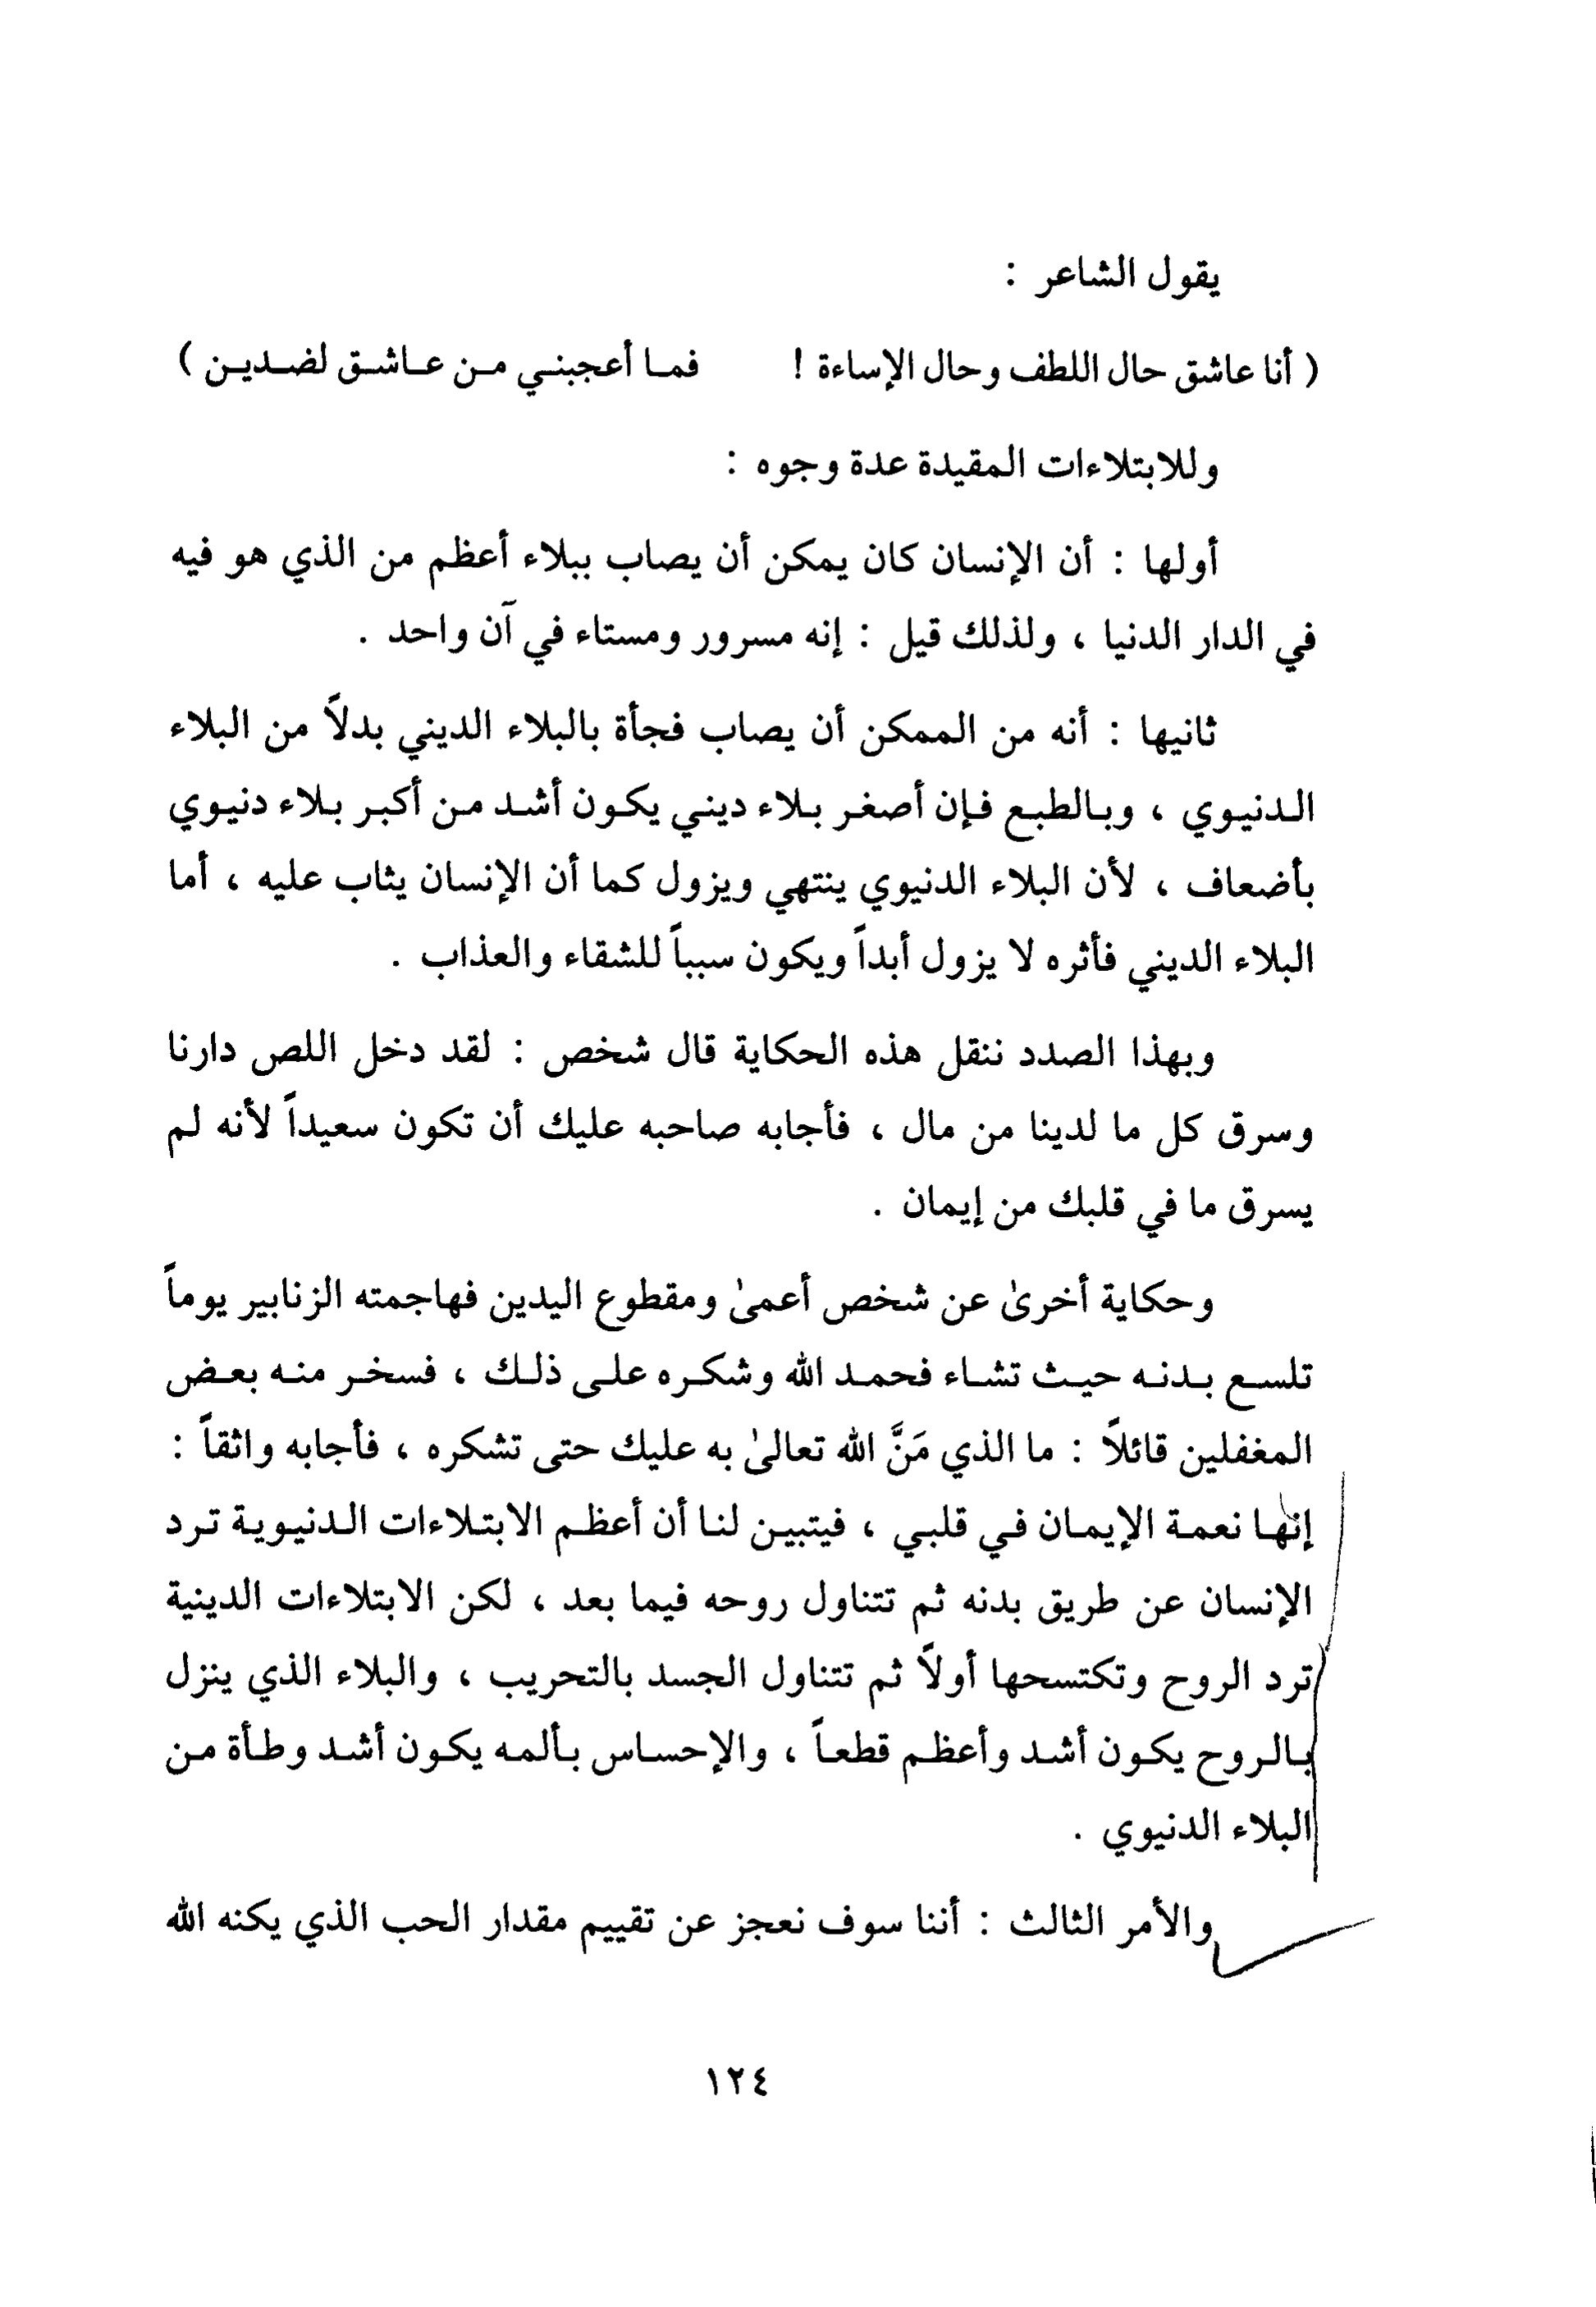 يقول الشاعر :
( أنا عاشق حال اللطف وحال الإساءة ! فما أعجبني من عاشق لضدين )
وللابتلاءات المقيدة عدة وجوه :
أولها : أن الإنسان كان يمكن أن يصاب ببلاء أعظم من الذي هو فيه
في الدار الدنيا ، ولذلك قيل : إنه مسرور ومستاء في آن واحد .
ثانيها : أنه من الممكن أن يصاب فجأة بالبلاء الديني بدلاً من البلاء
الدنيوي ، وبالطبع فإن أصغر بلاء ديني يكون أشد من أكبر بلاء دنيوي
بأضعاف ، لأن البلاء الدنيوي ينتهي ويزول كما أن الإنسان يثاب عليه ، أما
البلاء الديني فأثره لا يزول أبداً ويكون سبباً للشقاء والعذاب .
وبهذا الصدد ننقل هذه الحكاية قال شخص : لقد دخل اللص دارنا
وسرق كل ما لدينا من مال ، فأجابه صاحبه عليك أن تكون سعيداً لأنه لم
يسرق ما في قلبك من إيمان .
وحكاية أخرىٰ عن شخص أعمىٰ ومقطوع اليدين فهاجمته الزنابير يوماً
تلسع بدنه حيث تشاء فحمد الله وشكره على ذلك ، فسخر منه بعض
المغفلين قائلاً : ما الذي مَنَّ الله تعالىٰ به عليك حتى تشكره ، فأجابه واثقاً :
إنها نعمة الإيمان في قلبي ، فيتبين لنا أن أعظم الابتلاءات الدنيوية ترد
الإنسان عن طريق بدنه ثم تتناول روحه فيما بعد ، لكن الابتلاءات الدينية
ترد الروح وتكتسحها أولاً ثم تتناول الجسد بالتحريب ، والبلاء الذي ينزل
بالروح يكون أشد وأعظم قطعاً ، والإحساس بألمه يكون أشد وطأة من
البلاء الدنيوي .
والأمر الثالث : أننا سوف نعجز عن تقييم مقدار الحب الذي يكنه الله
١٢٤